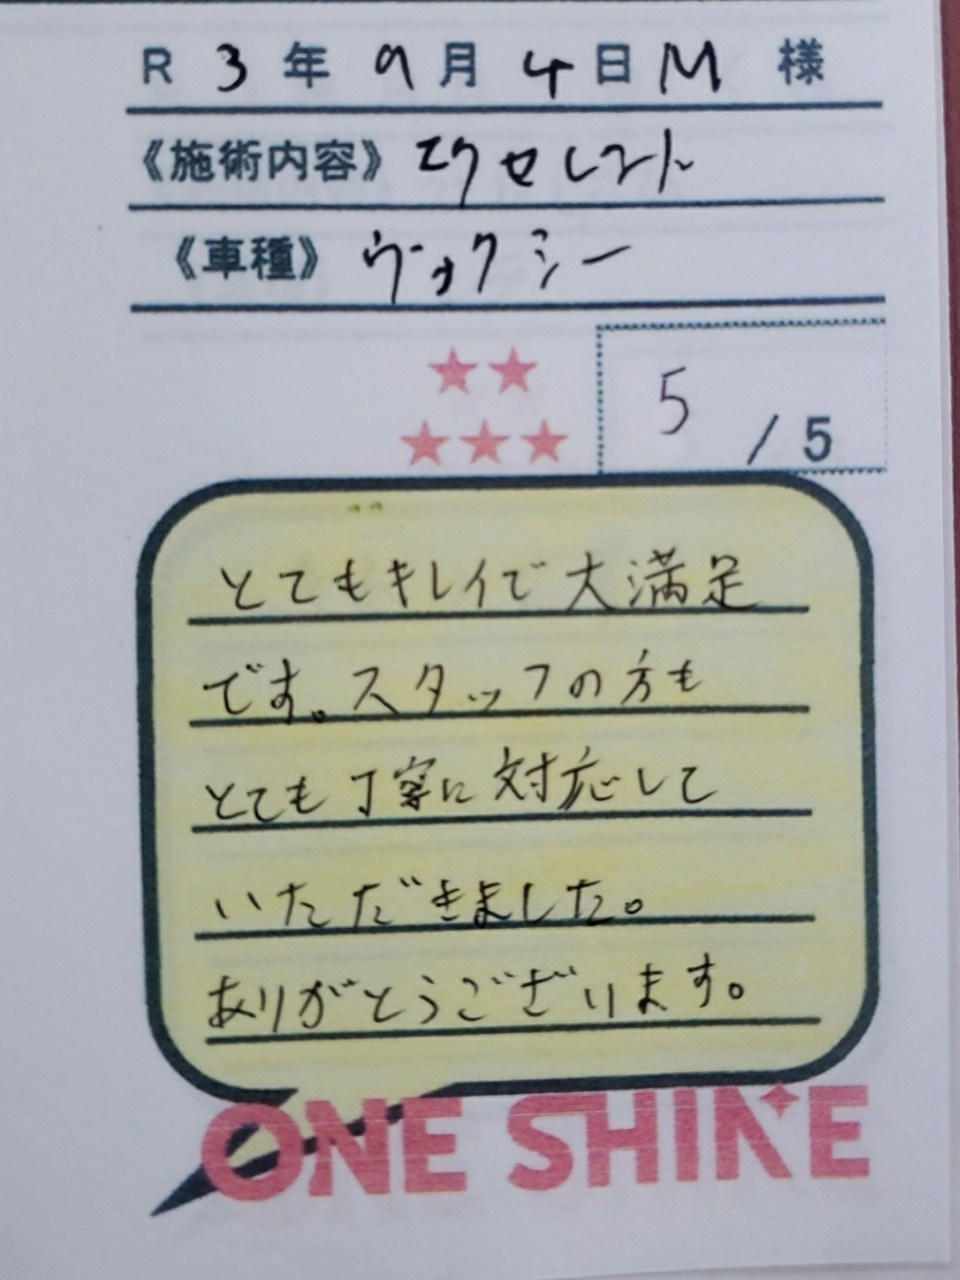 R 3 年 9 月 4 日 M 様
《施術内容》 エクセレント
《車種》 ヴォクシー
5 / 5
とてもキレイで大満足
です。スタッフの方も
とても丁寧に対応して
いただきました。
ありがとうございます。
ONE SHINE